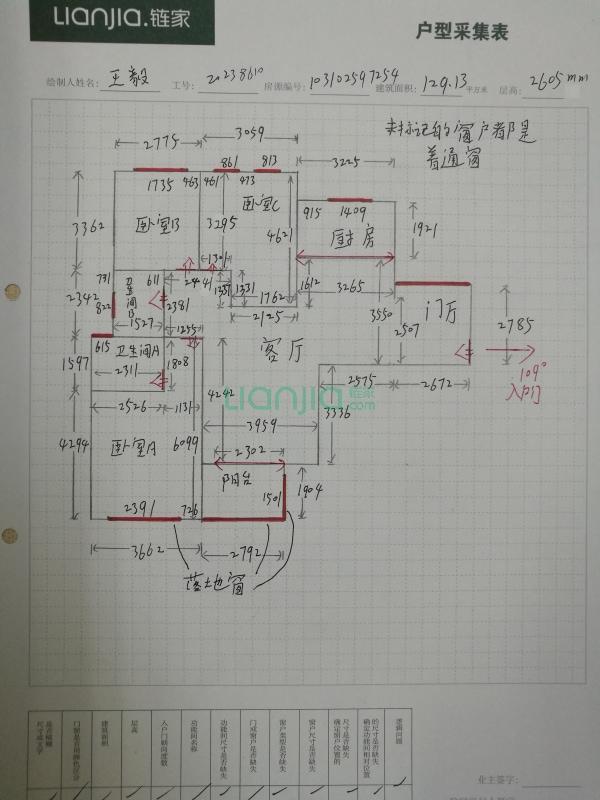 Lianjia.链家
户型采集表
绘制人姓名: 王毅 工号: 20238610 房源编号: 103102597254 建筑面积: 129.13 平方米 层高: 2605mm
未标记的窗户都是
普通窗
2775 3059
861 813
3225
1735 463 461 473
卧室B 卧室C
915 1409
3362 3295 4621 厨房 1921
1301
731 611 2441 1337 1331 1612 3265
卫生间B
2342 822 2381 1762 3550 2507 门厅 2785
1527 2125
1255
615 卫生间A 客厅
1597 2311 1808
109°
入户门
2526 1131 4242 2575 2672
Lianjia 链家.com
3959 3336
4294 卧室A 6099 2302
阳台
1501 1904
2391 726
3662 2792
落地窗
是否模糊尺寸或文字
门窗是否用颜色区分
建筑面积
层高
入户门朝向度数
功能间名称
功能间尺寸是否缺失
门或窗是否缺失
窗户类型是否缺失
窗户尺寸是否缺失
确定窗户位置的尺寸是否缺失
确定功能间相对位置的尺寸是否缺失
逻辑问题
化主签字: